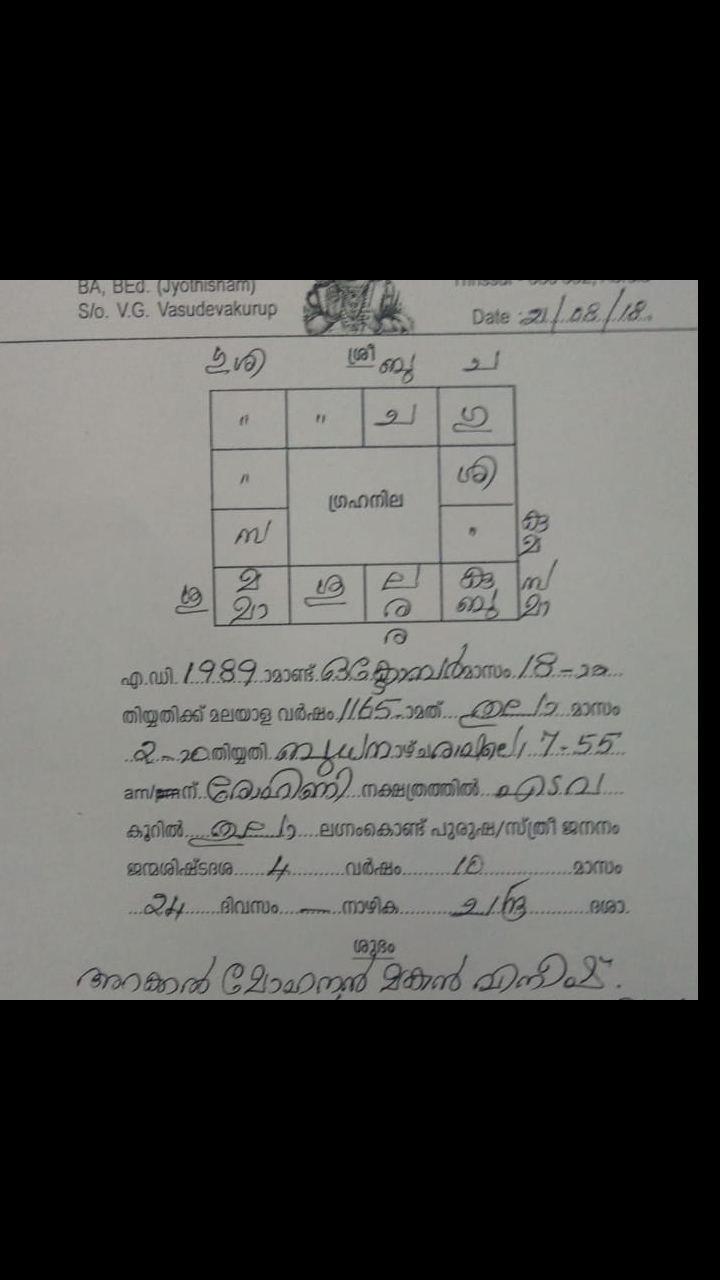 BA, BEd. (Jyothisham)
S/o. V.G. Vasudevakurup
Date : 21/08/18.
ശി ശ്രീ ബു ച
" " ച ഗു
" ശി
ഗ്രഹനില
സ "
കു
മ
ശു മ ശു ല കു സ
മാ ര ബു മാ
ര
എ.ഡി. 1989 ാമാണ്ട് ഒക്ടോബർ മാസം 18-ാം
തിയ്യതിക്ക് മലയാള വർഷം 1165-ാമത് തുലാ മാസം
2-ാം തിയ്യതി ബുധനാഴ്ച രാവിലെ 7-55
am/pm ന് രോഹിണി നക്ഷത്രത്തിൽ എടവ
കൂറിൽ തുലാ ലഗ്നംകൊണ്ട് പുരുഷ/സ്ത്രീ ജനനം
ജന്മശിഷ്ടദശ 4 വർഷം 10 മാസം
24 ദിവസം — നാഴിക ചന്ദ്ര ദശാ.
ശുഭം
അറക്കൽ മോഹനൻ മകൻ വിനീഷ്.